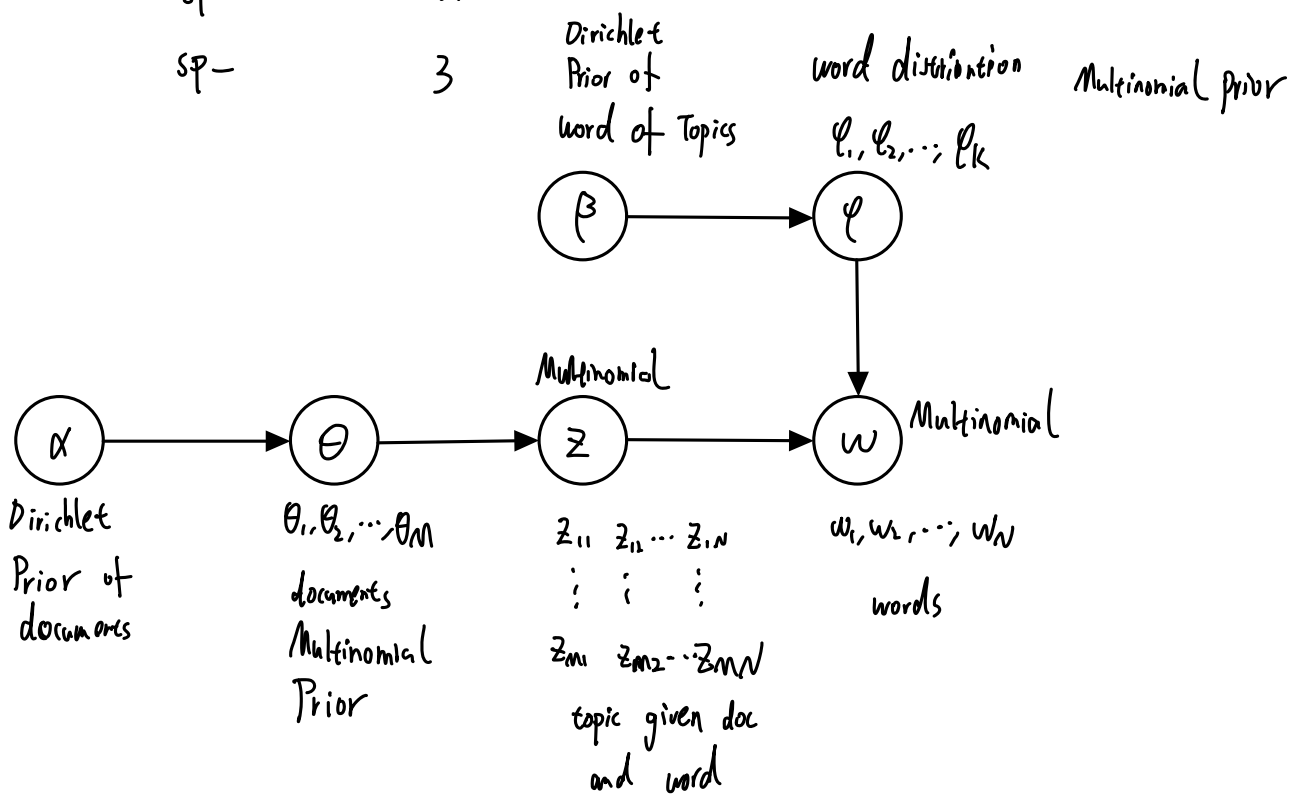 sp- 3
Dirichlet
Prior of
word of Topics
word distribution
φ₁, φ₂, ..., φK
Multinomial prior
β
φ
Multinomial
α
θ
z
w
Multinomial
Dirichlet
Prior of
θ₁, θ₂, ..., θM
documents
Multinomial
Prior
z₁₁ z₁₂ ... z₁N
⋮ ⋮ ⋮
zM1 zM2 ... zMN
topic given doc
and word
w₁, w₂, ..., wN
words